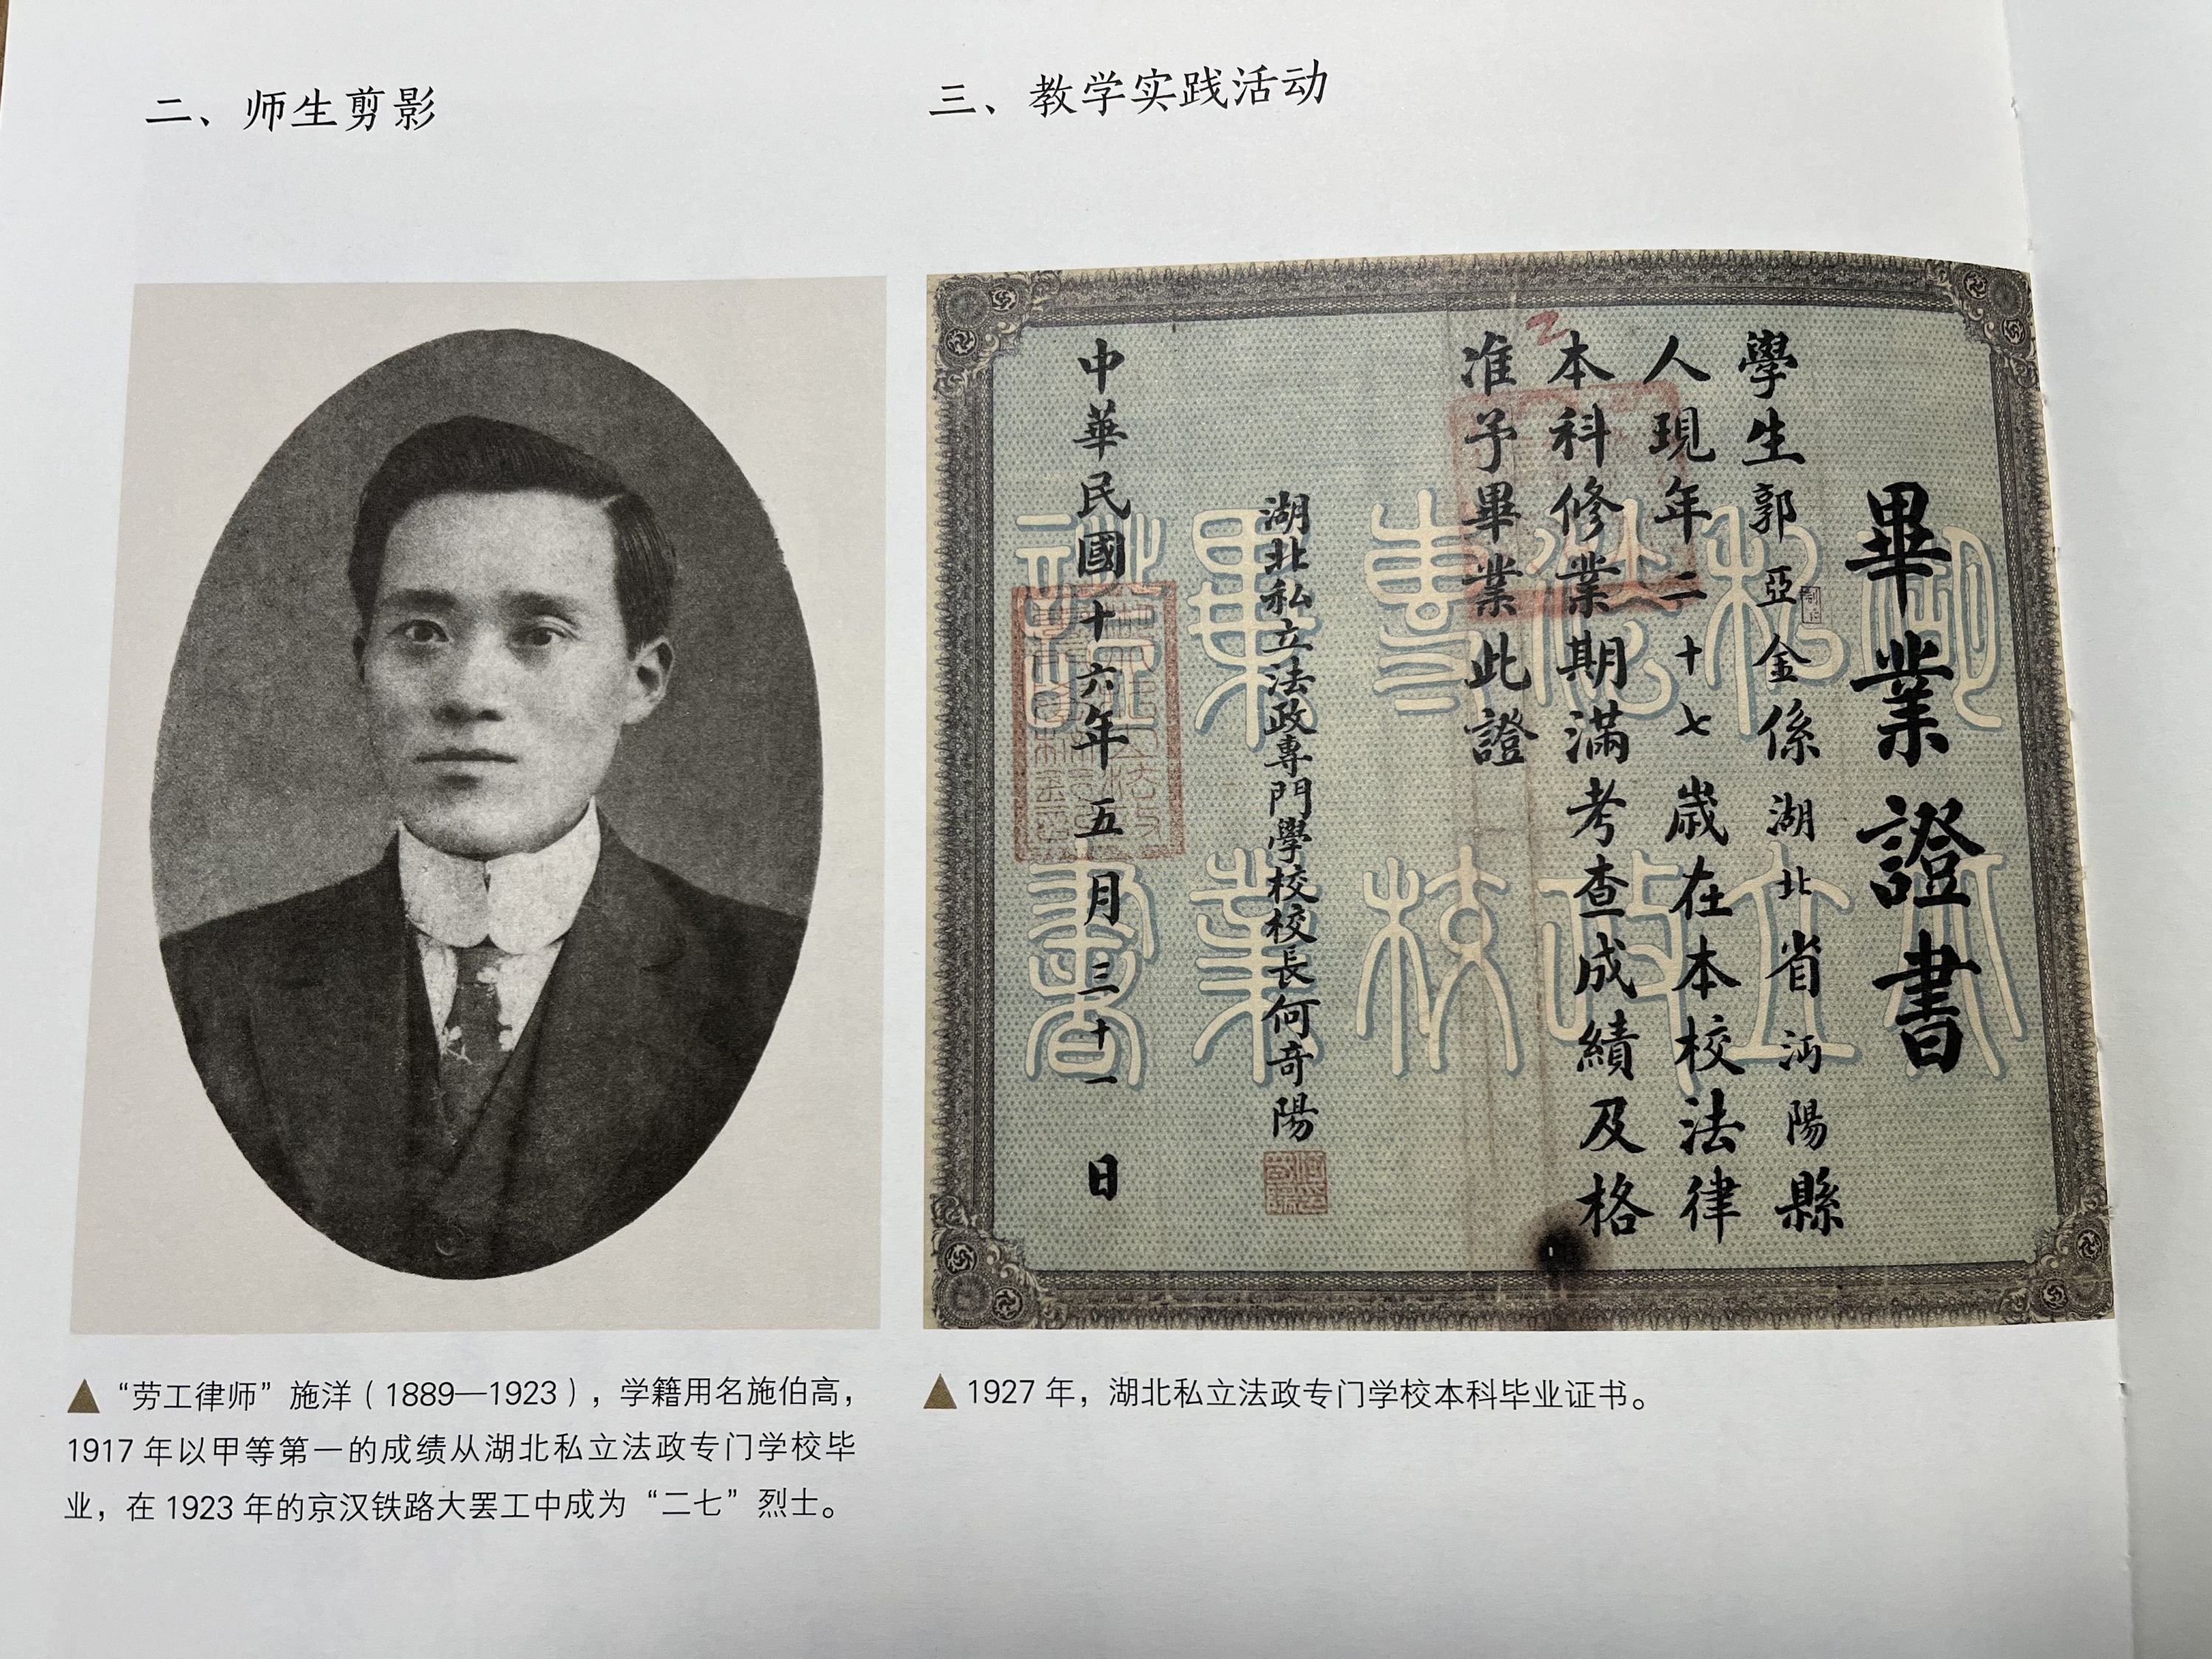 二、师生剪影
三、教学实践活动
畢業證書
學生郭亞金係湖北省沔陽縣
人現年二十七歲在本校法律
本科修業期滿考查成績及格
准予畢業此證
湖北私立法政專門學校校長何奇陽
中華民國十六年五月三十一日
▲“劳工律师”施洋（1889—1923），学籍用名施伯高，
1917年以甲等第一的成绩从湖北私立法政专门学校毕
业，在1923年的京汉铁路大罢工中成为“二七”烈士。
▲1927年，湖北私立法政专门学校本科毕业证书。